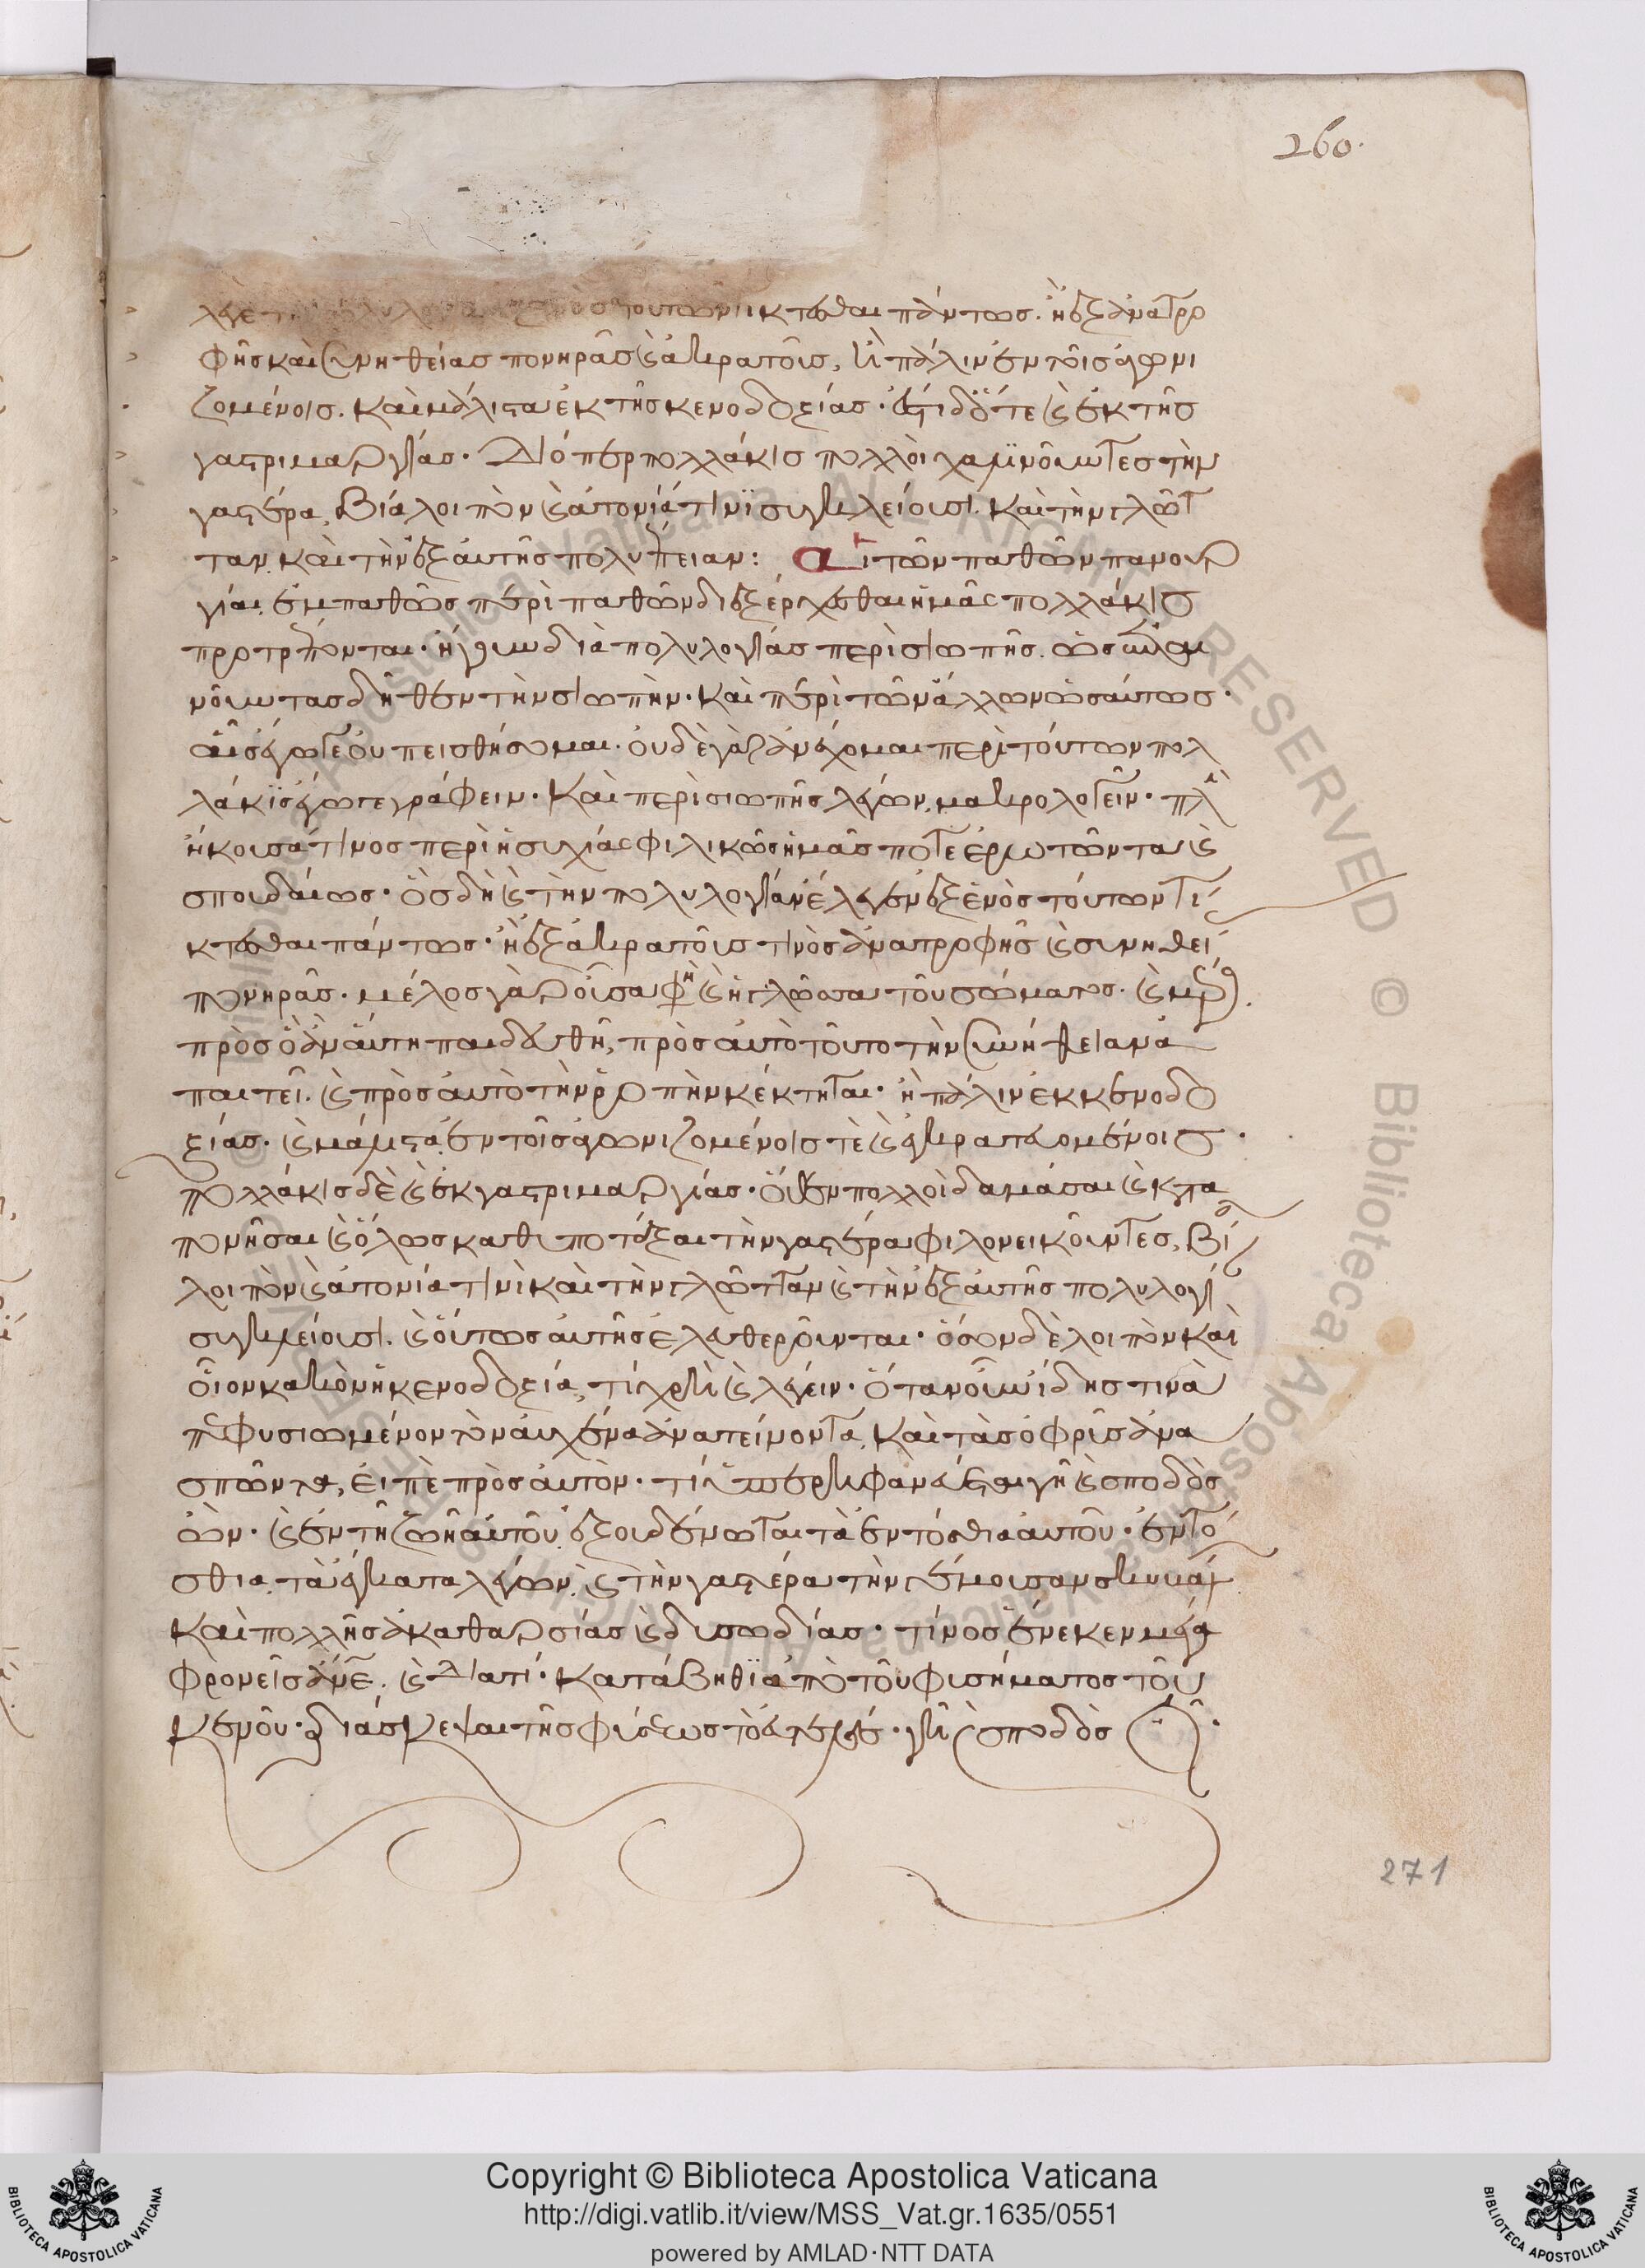 260.
τούτων τίκτεσθαι πάντως. ἢ ἐξ ἀνατρο
φῆς καὶ συνηθείας πονηρᾶς καὶ ἀκρατοῦς, ἢ πάλιν ἐν τοῖς ἀγωνι
ζομένοις. καὶ μάλιστα ἐκ τῆς κενοδοξίας. ἔστι δὅτε καὶ ἐκ τῆς
γαστριμαργίας. Διόπερ πολλάκις πολλοὶ χαλινοῦντες τὴν
γαστέρα, βία λοιπὸν καὶ ἀτονία τινῒ συγκλείουσι. καὶ τὴν γλῶτ
ταν. καὶ τὴν ἐξ αὐτῆς πολυέπειαν: Αἱ τῶν παθῶν πανουρ
γίαι. ἐμπαθῶς περὶ παθῶν διεξέρχεσθαι ἡμᾶς πολλάκις
προτρέπονται. ἤγουν διὰ πολυλογίας περὶ σιωπῆς. ὡς
δῆθεν τὴν σιωπὴν. καὶ περὶ τῶν ἄλλων ὡσαύτως.
αἷς ἐγώ γε οὐ πεισθήσομαι. οὐδὲ γὰρ ἀνέχομαι περὶ τούτων πολ
λάκις ἐγώ τε γράφειν. καὶ περὶ σιωπῆς λέγων, μακρολογεῖν. πλὴν
ἤκουσά τινος περὶ ἡσυχίας φιλικῶς ἡμᾶς ποτε ἐρωτῶντα καὶ
σπουδαίως. ὃς δὴ καὶ τὴν πολυλογίαν ἔλεγεν ἐξ ἑνὸς τούτων τί
κτεσθαι πάντως. ἢ ἐξ ἀκρατοῦς τινὸς ἀνατροφῆς καὶ συνηθεί
πονηρᾶς. μέλος γὰρ οὖσα φη καὶ ἡ γλῶσσα τοῦ σώματος.
πρὸς ὃ ἂν αὕτη παιδευθῆ, πρὸς αὐτὸ τοῦτο τὴν συνήθειαν ἀ
παιτεῖ. καὶ πρὸς αὐτὸ τὴν ῥοπὴν κέκτηται. ἢ πάλιν ἐκ κενοδο
ξίας. καὶ μάλιστα ἐν τοῖς ἀγωνιζομένοις τὲ καὶ ἐγκρατευομένοις.
πολλάκις δὲ καὶ ἐκ γαστριμαργίας. ὅθεν πολλοὶ δαμάσαι καὶ κατα
πονῆσαι καὶ ὅλως καθυποτάξαι τὴν γαστέρα φιλονεικοῦντες, βί
λοιπὸν καὶ ἀτονία τινὶ καὶ τὴν γλῶτταν καὶ τὴν ἐξ αὐτῆς πολυλογί
συγκλείουσι. καὶ οὕτως αὐτῆς ἐλευθεροῦνται. ὅσον δὲ λοιπὸν καὶ
οἷον κακὸν ἡ κενοδοξία, τί χρὴ καὶ λέγειν. ὅταν οὖν ἴδης τινὰ
πεφυσιωμένον τὸν αὐχένα ἀνατείνοντα, καὶ τὰς ὀφρῦς ἀνα
σπῶντα, εἰπὲ πρὸς αὐτὸν. τί ὑπερηφανεύεται γῆ καὶ σποδὸς
ὢν. καὶ ἐν τῆ ζωῆ αὐτοῦ. ἐξουδένωται τὰ ἐντόσθια αὐτοῦ. ἐντό
σθια. τὰ ἔγκατα λέγων. καὶ τὴν γαστέρα τὴν γέμουσαν
καὶ πολλῆς ἀκαθαρσίας καὶ δυσωδίας. τίνος ἕνεκεν μέγα
φρονεῖς ἄνε. καὶ Διατί. κατάβηθι ἀπὸ τοῦ φυσήματος τοῦ
κενοῦ. διάσκεψαι τῆς φύσεως τὸ εὐτελές. γῆ καὶ σποδὸς εἶ.
271
Copyright © Biblioteca Apostolica Vaticana
http://digi.vatlib.it/view/MSS_Vat.gr.1635/0551
powered by AMLAD·NTT DATA